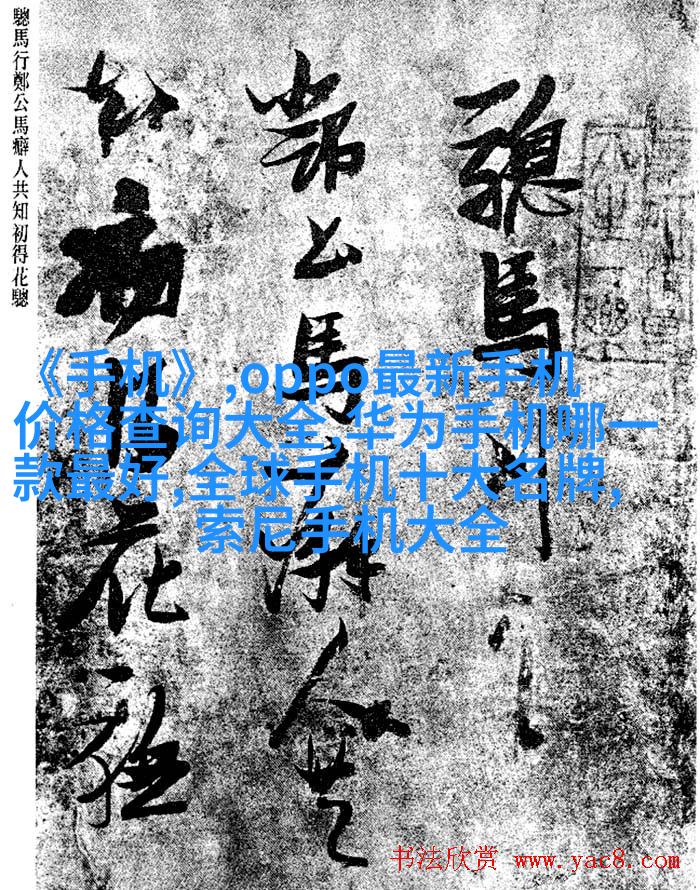 驄馬行鄭公馬癖人共知初得花驄
驄馬行
鄭公馬癖人共
知初得花驄
《手机》,oppo最新手机
价格查询大全,华为手机哪一
款最好,全球手机十大名牌,
索尼手机大全
书法欣赏 www.yac8.com